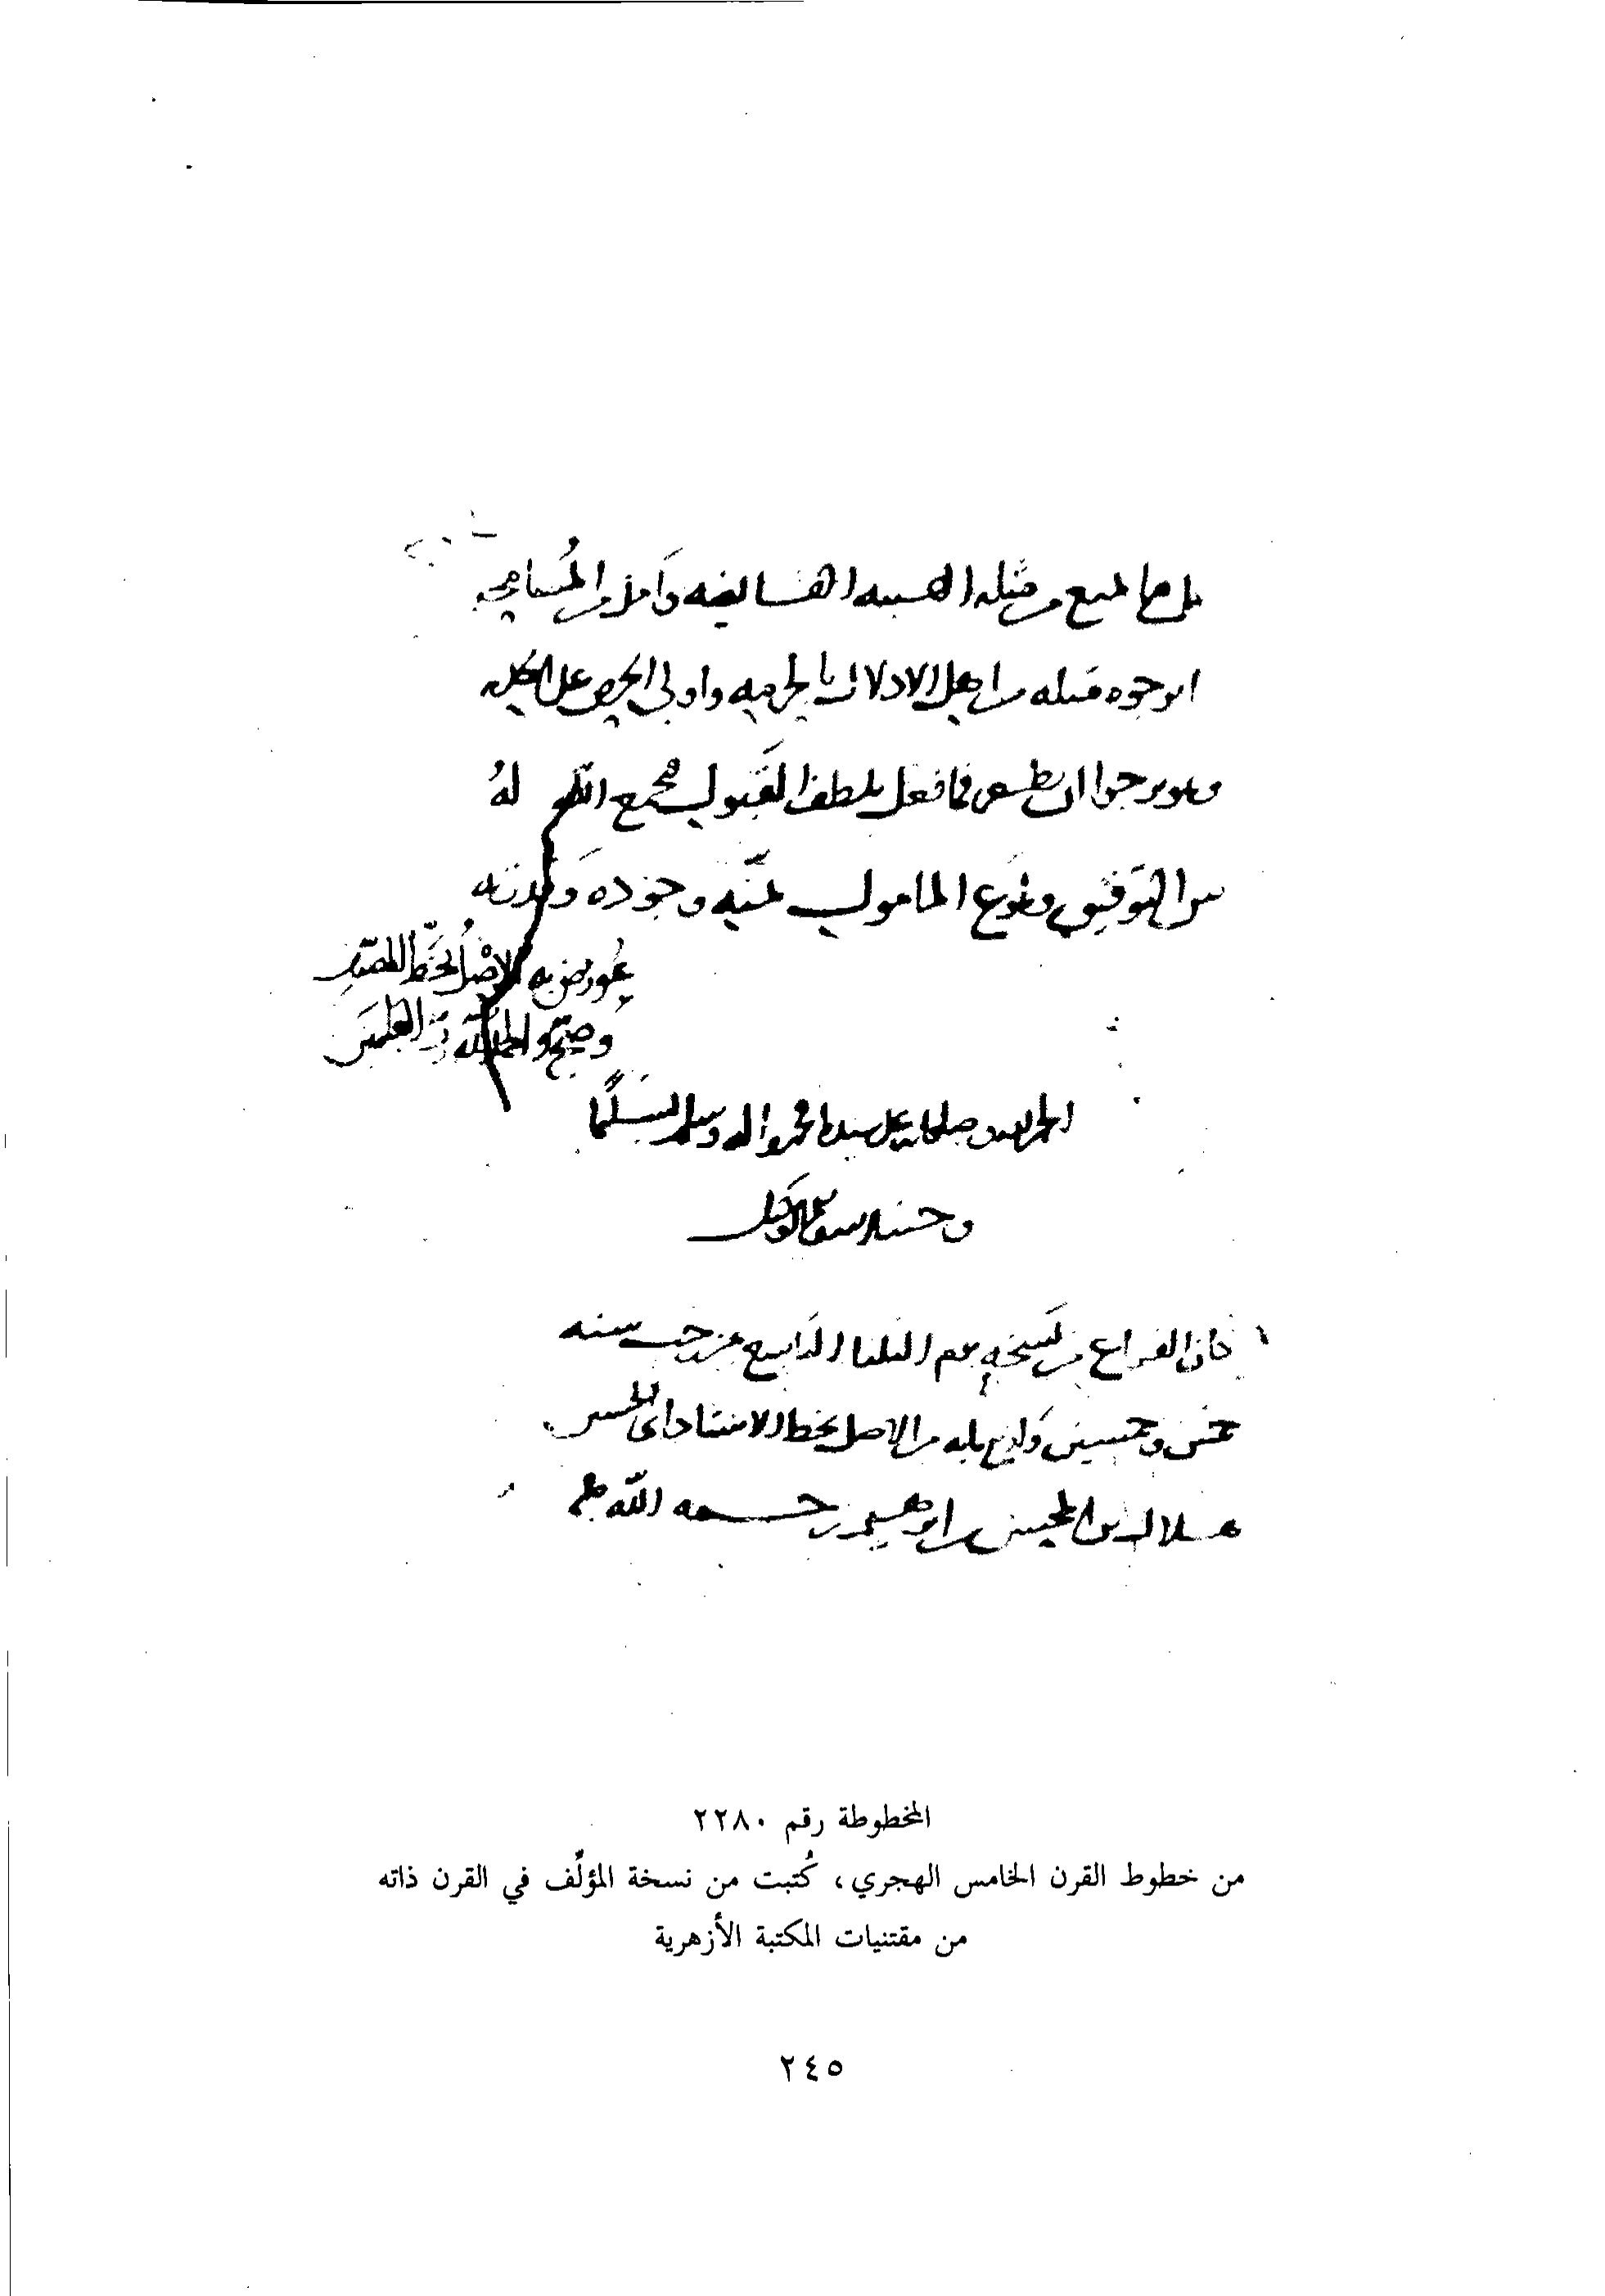 بل ما منع من مثله الهيبه الفـ وامل من المسامحه
اهل الادلال بالحرمه واولى الحرص على
وهو يرجوا ان فيما فعل بلطف القبول فيجمع الله له
بين التوفيق وبلوغ المامول بمنه وجوده وقدرته
عورض به الاصل بخط المصنف
وصح والحمد لله رب العلمين
الحمد لله وصلى الله على سيدنا محمد واله وسلم تسليما
وحسبنا الله ونعم الوكيل
كان الفراغ من نسخه يوم الثلثا الرابع من رجب سنه
خمس وخمسين واربع مايه من الاصل بخط الاستاذ ابى الحسين
هلال بن المحسن بن ابرهيم رحمه الله
المخطوطة رقم ٢٢٨٠
من خطوط القرن الخامس الهجري، كُتبت من نسخة المؤلِّف في القرن ذاته
من مقتنيات المكتبة الأزهرية
٢٤٥